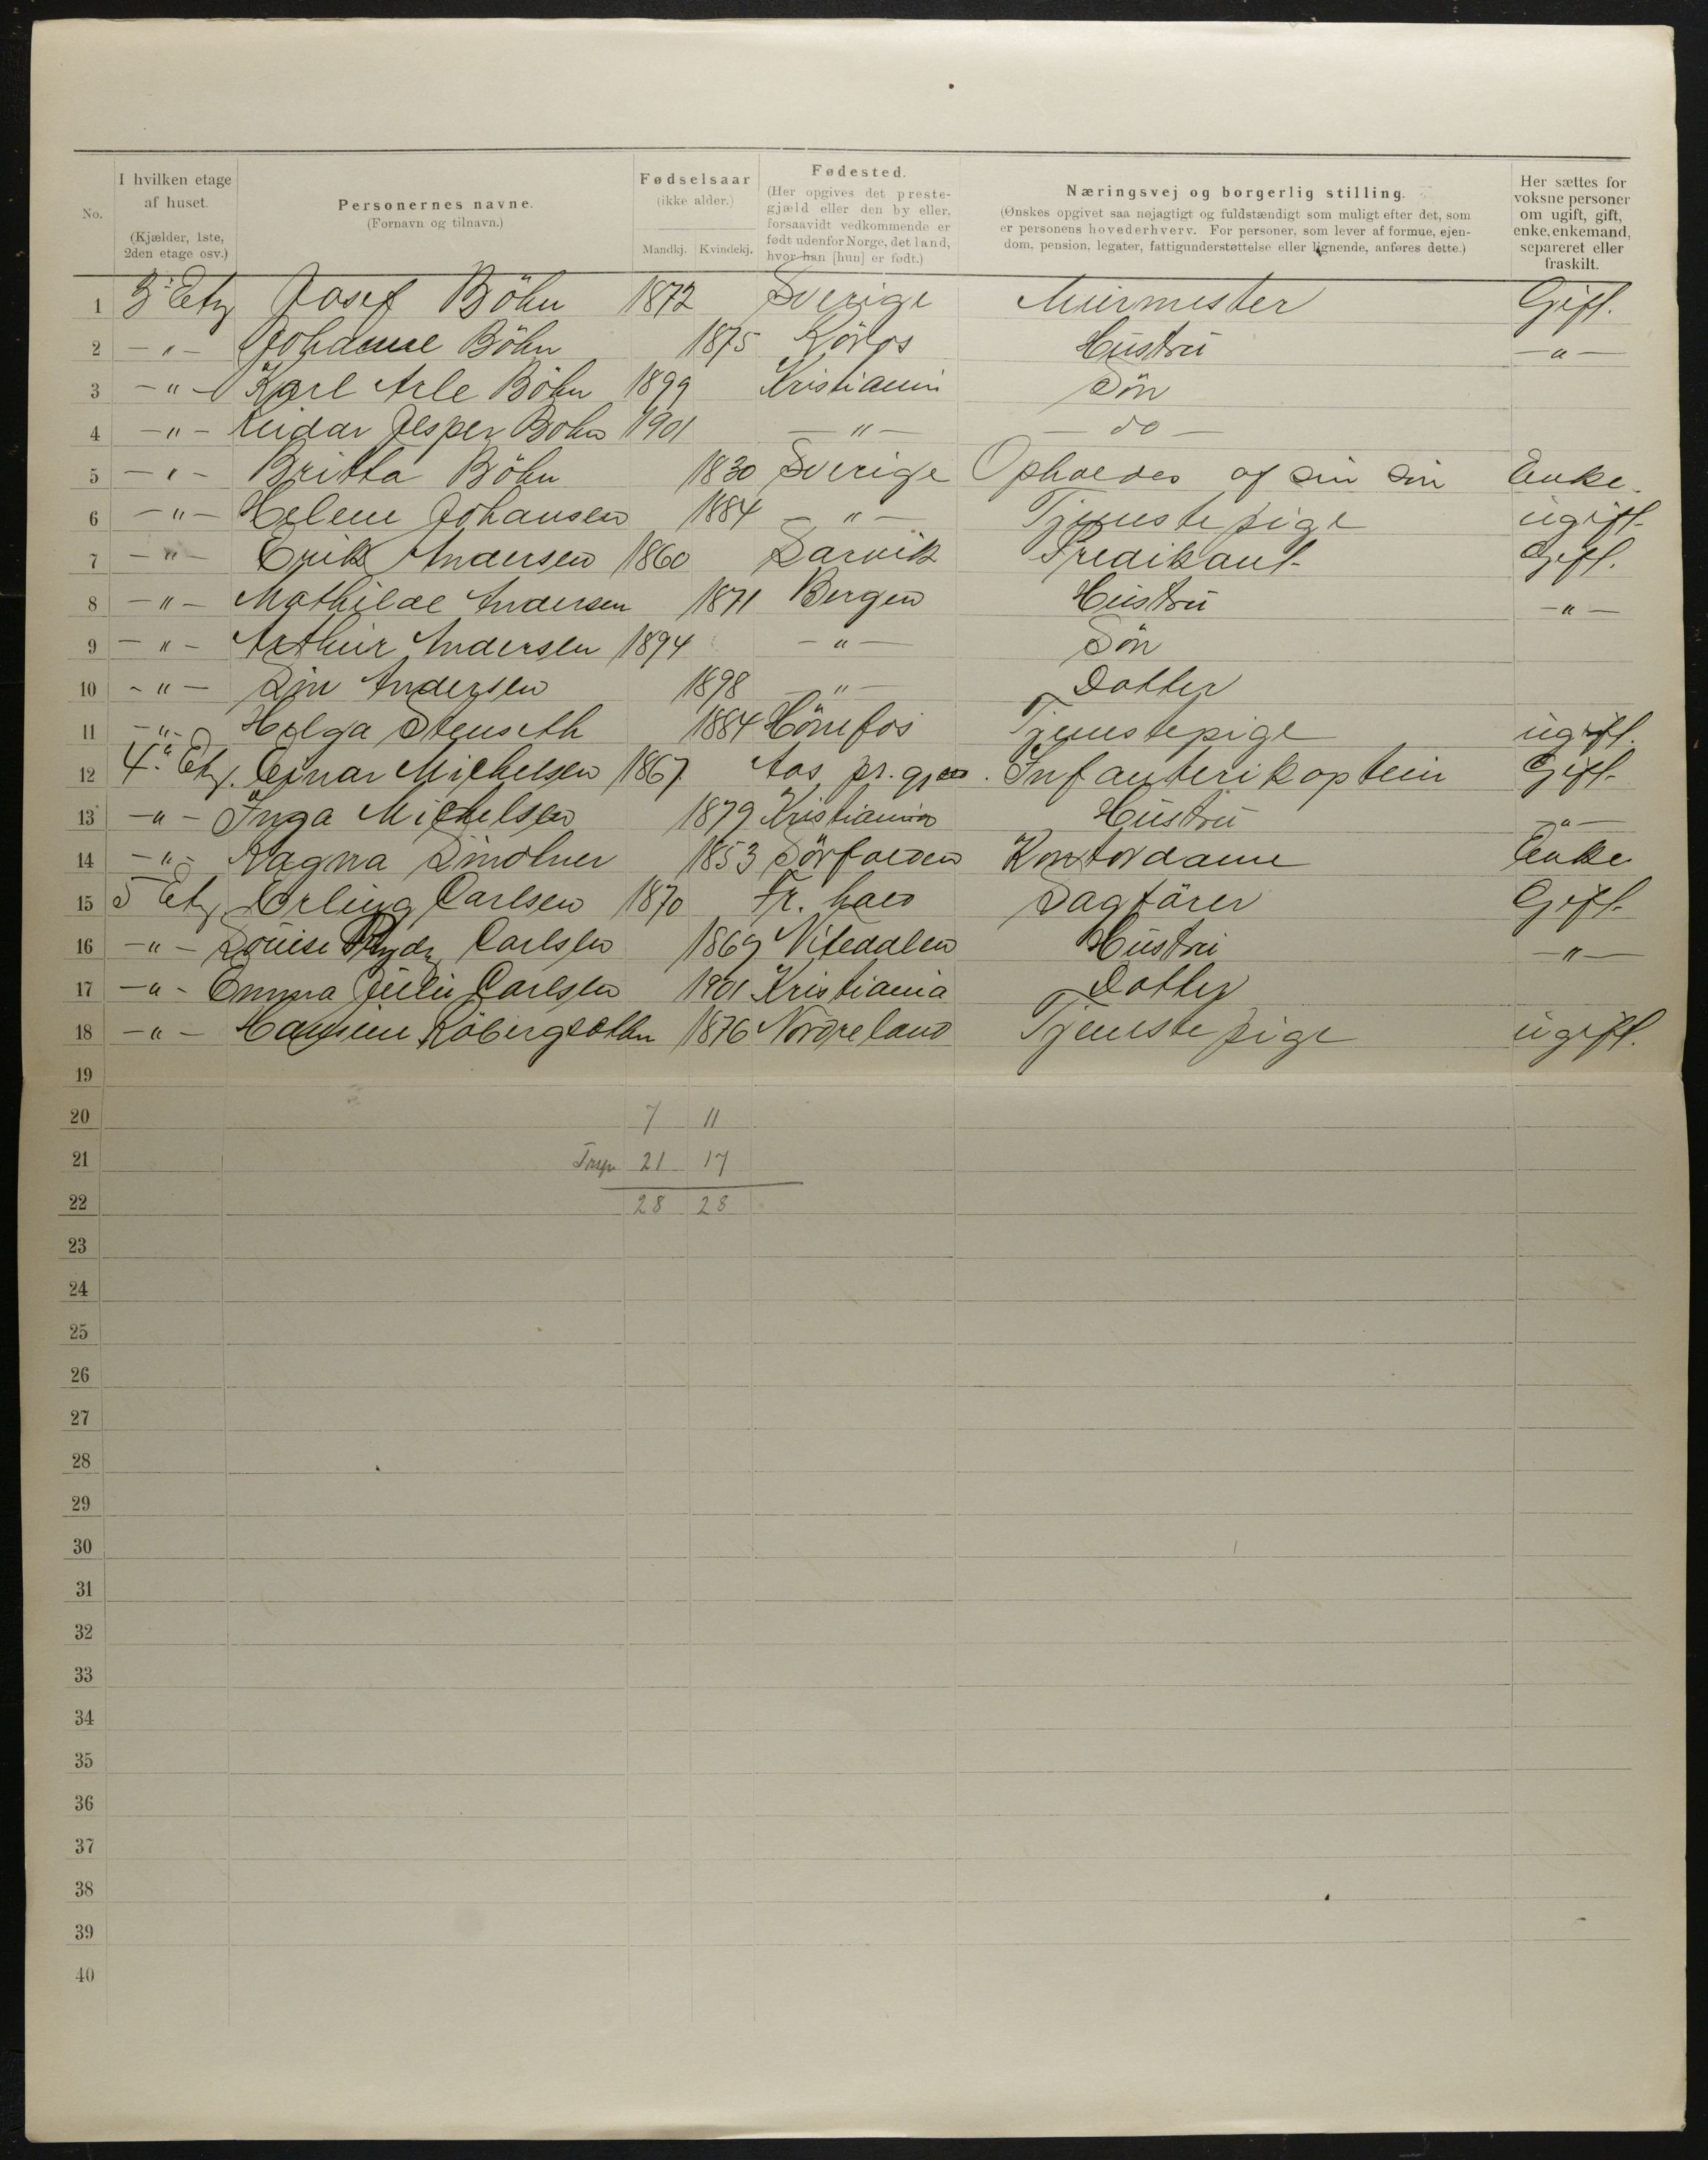 No.
I hvilken etage
af huset.
(Kjælder, 1ste,
2den etage osv.)
Personernes navne.
(Fornavn og tilnavn.)
Fødselsaar
(ikke alder.)
Mandkj. Kvindekj.
Fødested.
(Her opgives det preste-
gjæld eller den by eller,
forsaavidt vedkommende er
født udenfor Norge, det land,
hvor han [hun] er født.)
Næringsvej og borgerlig stilling.
(Ønskes opgivet saa nøjagtigt og fuldstændigt som muligt efter det, som
er personens hovederhverv. For personer, som lever af formue, ejen-
dom, pension, legater, fattigunderstøttelse eller lignende, anføres dette.)
Her sættes for
voksne personer
om ugift, gift,
enke, enkemand,
separeret eller
fraskilt.
1 3. Etg Josef Böhn 1872 Sverige Murmester Gift.
2 -"- Johanne Böhn 1875 Röros Hustru -"-
3 -"- Karl Arle Böhn 1899 Kristiania Sön
4 -"- Reidar Jesper Bohn 1901 -"- -do-
5 -"- Britta Böhn 1830 Sverige Opholdes af sin sön Enke.
6 -"- Helene Johansen 1884 -"- Tjenstepige ugift.
7 -"- Erik Andersen 1860 Larvik Predikant Gift.
8 -"- Mathilde Andersen 1871 Bergen Hustru -"-
9 -"- Arthur Andersen 1894 -"- Sön
10 -"- Andersen 1898 -"- Datter
11 -"- Helga Stenseth 1884 Hönefos Tjenstepige ugift.
12 4. Etg. Einar Michelsen 1867 Aas pr. gj. Infanterikaptein Gift.
13 -"- Inga Michelsen 1879 Kristiania Hustru -"-
14 -"- Ragna Lindtner 1853 Sörfolden Kontordame Enke
15 5 Etg Erling Carlsen 1870 Fr. hald Sagförer Gift.
16 -"- Louise Carlsen 1869 Nitedalen Hustru -"-
17 -"- Emma Julie Carlsen 1901 Kristiania Datter
18 -"- Hansine 1876 Nordre land Tjenstepige ugift.
19
20 7 11
21 21 17
22 28 28
23
24
25
26
27
28
29
30
31
32
33
34
35
36
37
38
39
40